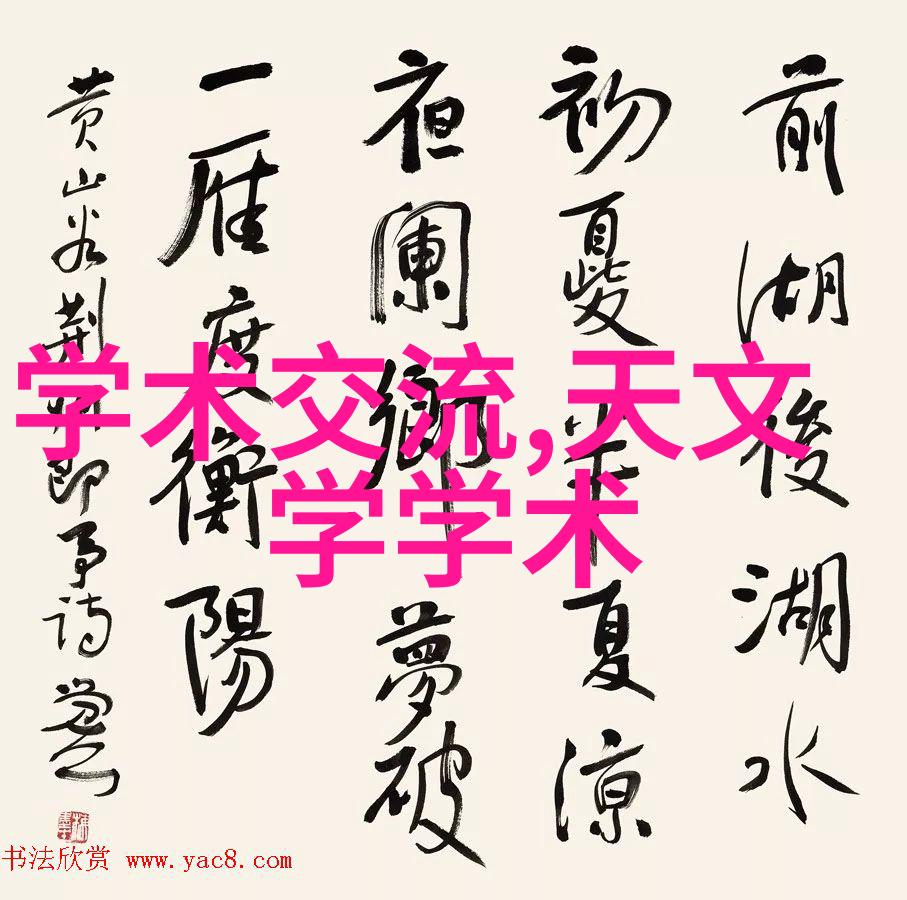 前湖後湖水
初夏半夏涼
夜闌鄉夢破
一雁度衡陽
黄山谷荆州即事诗
学术交流,天文
学学术
书法欣赏 www.yac8.com